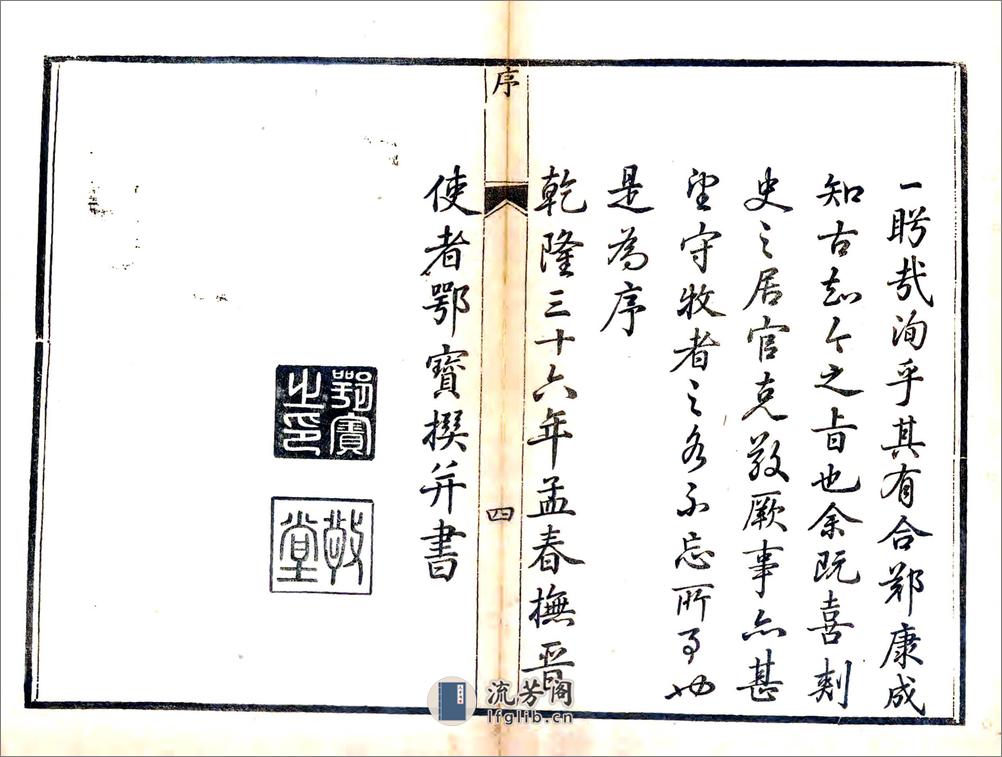 一眄哉洵乎其有合鄭康成
知古知今之旨也余既喜刺
史之居官克敬厥事亦甚
望守牧者之各不忘所司也
是為序
乾隆三十六年孟春撫晉
序
四
使者鄂寶撰并書
鄂寶之印
敬堂
流芳阁
lfglib.cn